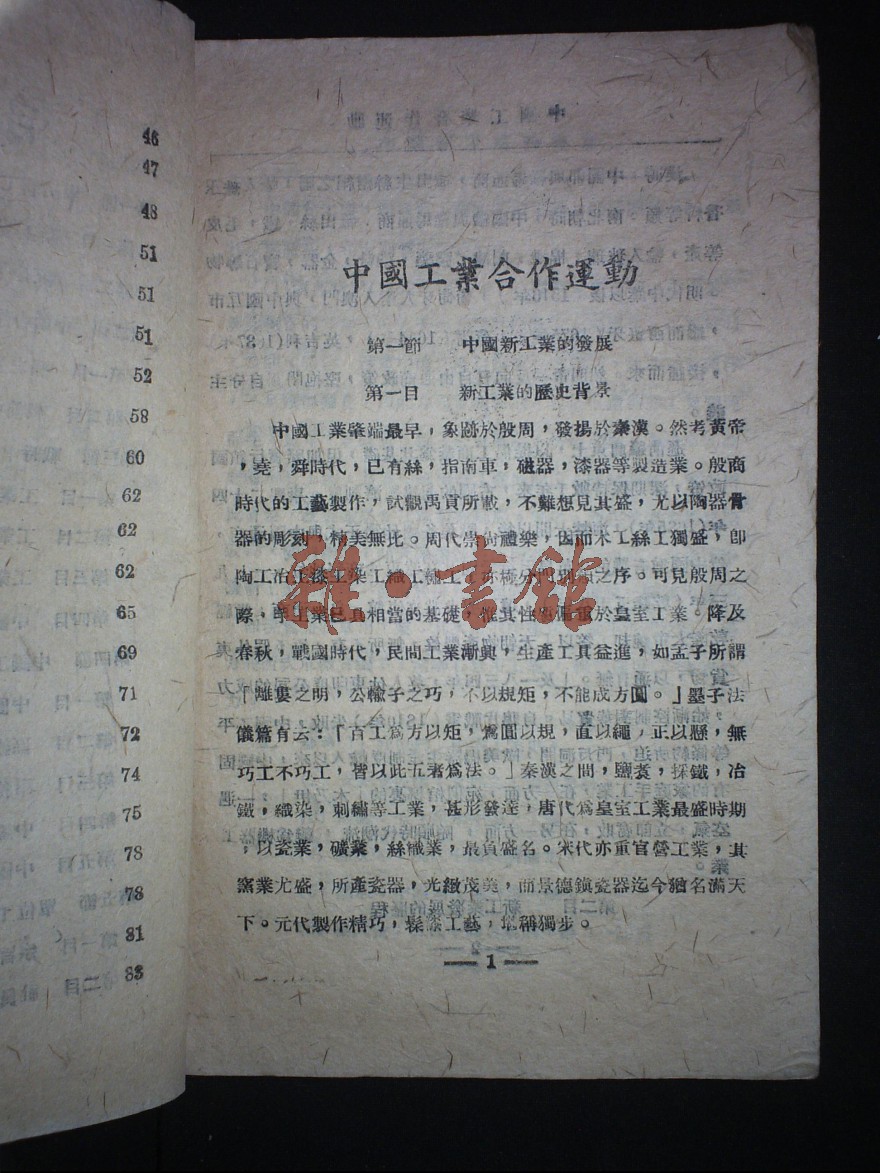 46
47
48
51
51
51
52
58
60
62
62
62
65
69
71
72
74
75
78
78
81
83
中國工業合作運動
第一節 中國新工業的發展
第一目 新工業的歷史背景
中國工業肇端最早,象跡於殷周,發揚於秦漢。然考黃帝
,堯,舜時代,已有絲,指南車,磁器,漆器等製造業。殷商
時代的工藝製作,試觀禹貢所載,不難想見其盛,尤以陶器骨
器的彫刻,精美無比。周代崇尚禮樂,因而木工絲工獨盛,卽
陶工冶工漆工染工織工繡工,亦極分門別類之序。可見殷周之
際,工業已具相當的基礎,惟其性質偏重於皇室工業。降及
春秋,戰國時代,民間工業漸興,生產工具益進,如孟子所謂
「離婁之明,公輸子之巧,不以規矩,不能成方圓。」墨子法
儀篇有云:「百工爲方以矩,爲圓以規,直以繩,正以懸,無
巧工不巧工,皆以此五者爲法。」秦漢之間,鹽煑,採鐵,冶
鐵,織染,刺繡等工業,甚形發達,唐代爲皇室工業最盛時期
,以瓷業,礦業,絲織業,最負盛名。宋代亦重官營工業,其
窰業尤盛,所產瓷器,光緻茂美,而景德鎮瓷器迄今猶名滿天
下。元代製作精巧,髹漆工藝,堪稱獨步。
— 1 —
雅·書館